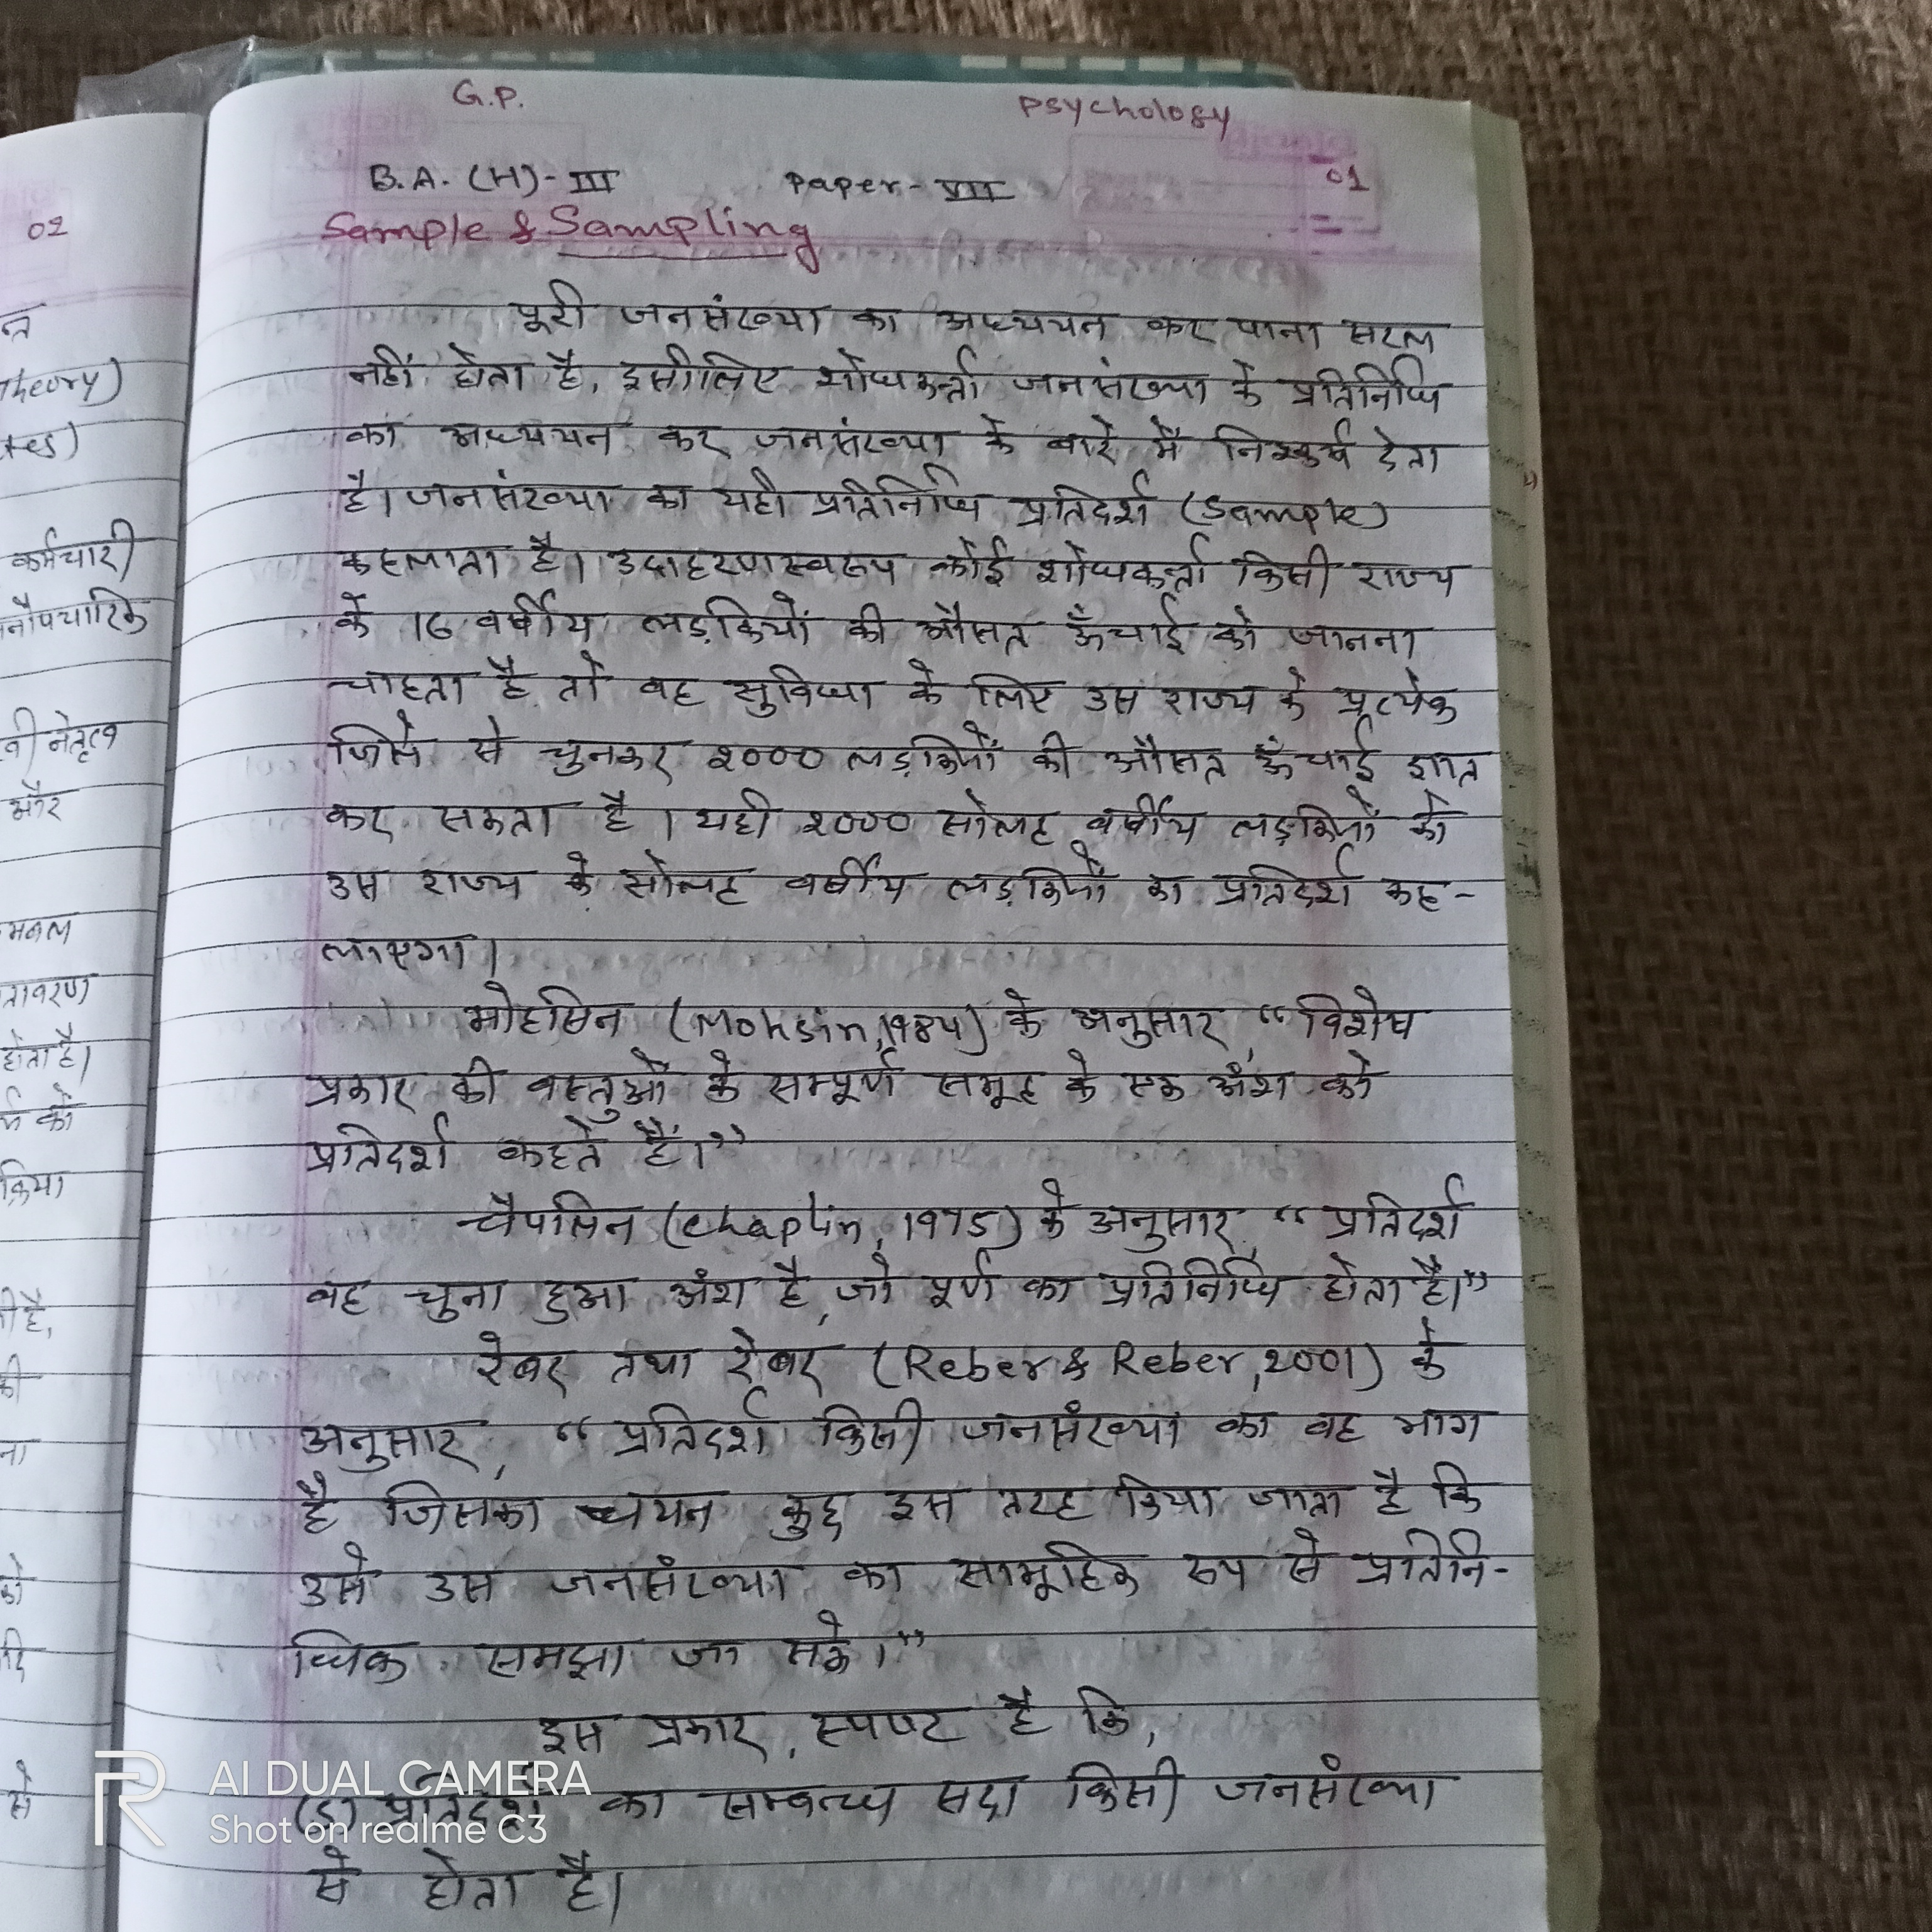 G.P. Psychology
B.A. (H)-III Paper-VII 01
Sample & Sampling
पूरी जनसंख्या का अध्ययन कर पाना सरल
नहीं होता है, इसीलिए शोधकर्त्ता जनसंख्या के प्रतिनिधि
का अध्ययन कर जनसंख्या के बारे में निष्कर्ष देता
है। जनसंख्या का यही प्रतिनिधि प्रतिदर्श (Sample)
कहलाता है। उदाहरणस्वरूप कोई शोधकर्त्ता किसी राज्य
के 16 वर्षीय लड़कियों की औसत ऊँचाई को जानना
चाहता है तो वह सुविधा के लिए उस राज्य के प्रत्येक
जिले से चुनकर 2000 लड़कियों की औसत ऊँचाई ज्ञात
कर सकता है। यही 2000 सोलह वर्षीय लड़कियों को
उस राज्य के सोलह वर्षीय लड़कियों का प्रतिदर्श कह-
लाएगा।
मोहसिन (Mohsin, 1984) के अनुसार, “विशेष
प्रकार की वस्तुओं के सम्पूर्ण समूह के एक अंश को
प्रतिदर्श कहते हैं।”
चैपलिन (Chaplin, 1975) के अनुसार “प्रतिदर्श
वह चुना हुआ अंश है, जो पूर्ण का प्रतिनिधि होता है।”
रेबर तथा रेबर (Reber & Reber, 2001) के
अनुसार, “प्रतिदर्श किसी जनसंख्या का वह भाग
है जिसका चयन कुछ इस तरह किया जाता है कि
उसे उस जनसंख्या का सामूहिक रूप से प्रतिनि-
धिक समझा जा सके।”
इस प्रकार, स्पष्ट है कि,
प्रतिदर्श का सम्बन्ध सदा किसी जनसंख्या
से होता है।
02
Theory)
कर्मचारी
नेतृत्व
और
होता है।
AI DUAL CAMERA
Shot on realme C3